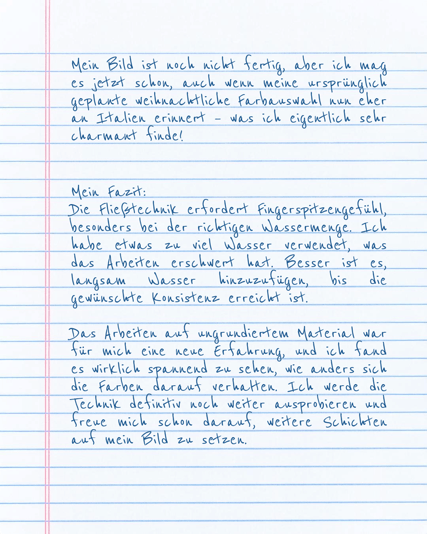 Mein Bild ist noch nicht fertig, aber ich mag
es jetzt schon, auch wenn meine ursprünglich
geplante weihnachtliche Farbauswahl nun eher
an Italien erinnert - was ich eigentlich sehr
charmant finde!
Mein Fazit:
Die Fließtechnik erfordert Fingerspitzengefühl,
besonders bei der richtigen Wassermenge. Ich
habe etwas zu viel Wasser verwendet, was
das Arbeiten erschwert hat. Besser ist es,
langsam Wasser hinzuzufügen, bis die
gewünschte Konsistenz erreicht ist.
Das Arbeiten auf ungrundiertem Material war
für mich eine neue Erfahrung, und ich fand
es wirklich spannend zu sehen, wie anders sich
die Farben darauf verhalten. Ich werde die
Technik definitiv noch weiter ausprobieren und
freue mich schon darauf, weitere Schichten
auf mein Bild zu setzen.